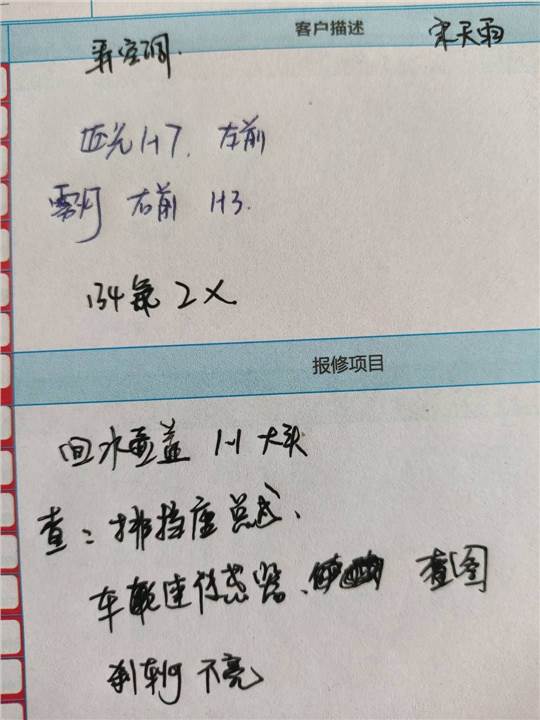 客户描述 宋天雨
弄空调.
近光H7. 左前
雾灯 右前 H3.
134氟 2X
报修项目
回水壶盖 1-1 大头
查: 排挡座总成、
车轮速传感器、 查图
刹车灯不亮